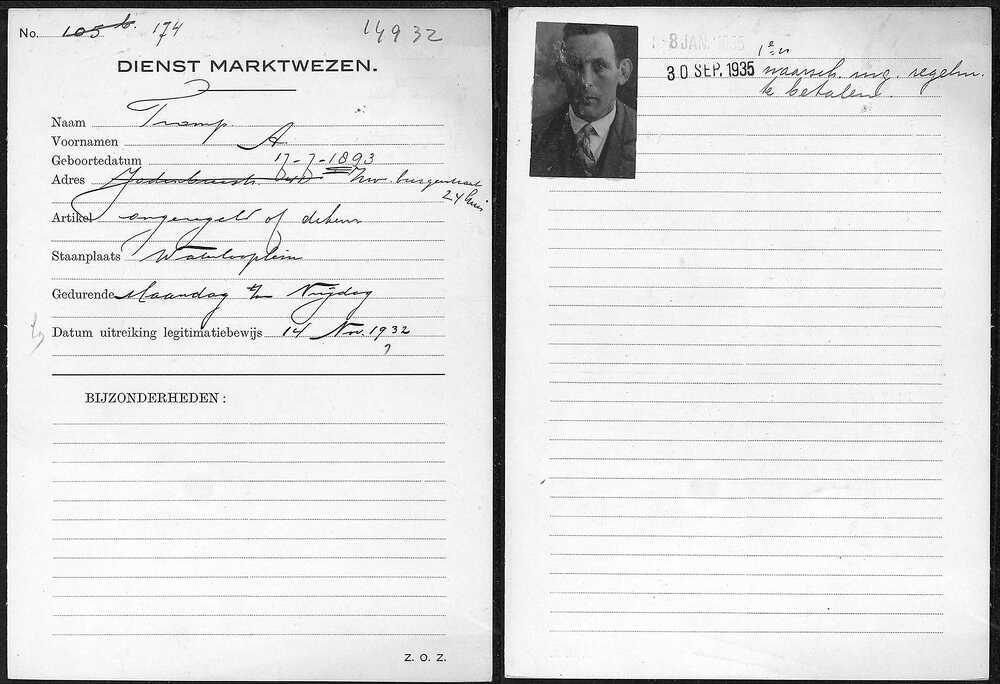 No. 105 b. 174 14932
DIENST MARKTWEZEN.
Naam Tramp
Voornamen A
Geboortedatum 17-7-1893
Adres Jodenbreestr. Nw. burgerstraat
24 huis
Artikel ongeregeld of
Staanplaats Waterlooplein
Gedurende Maandag t/m Vrijdag
Datum uitreiking legitimatiebewijs 14 Nov. 1932
BIJZONDERHEDEN:
Z. O. Z.
-8 JAN. 1935
30 SEP. 1935 1e waarsch. regelm.
te betalen.